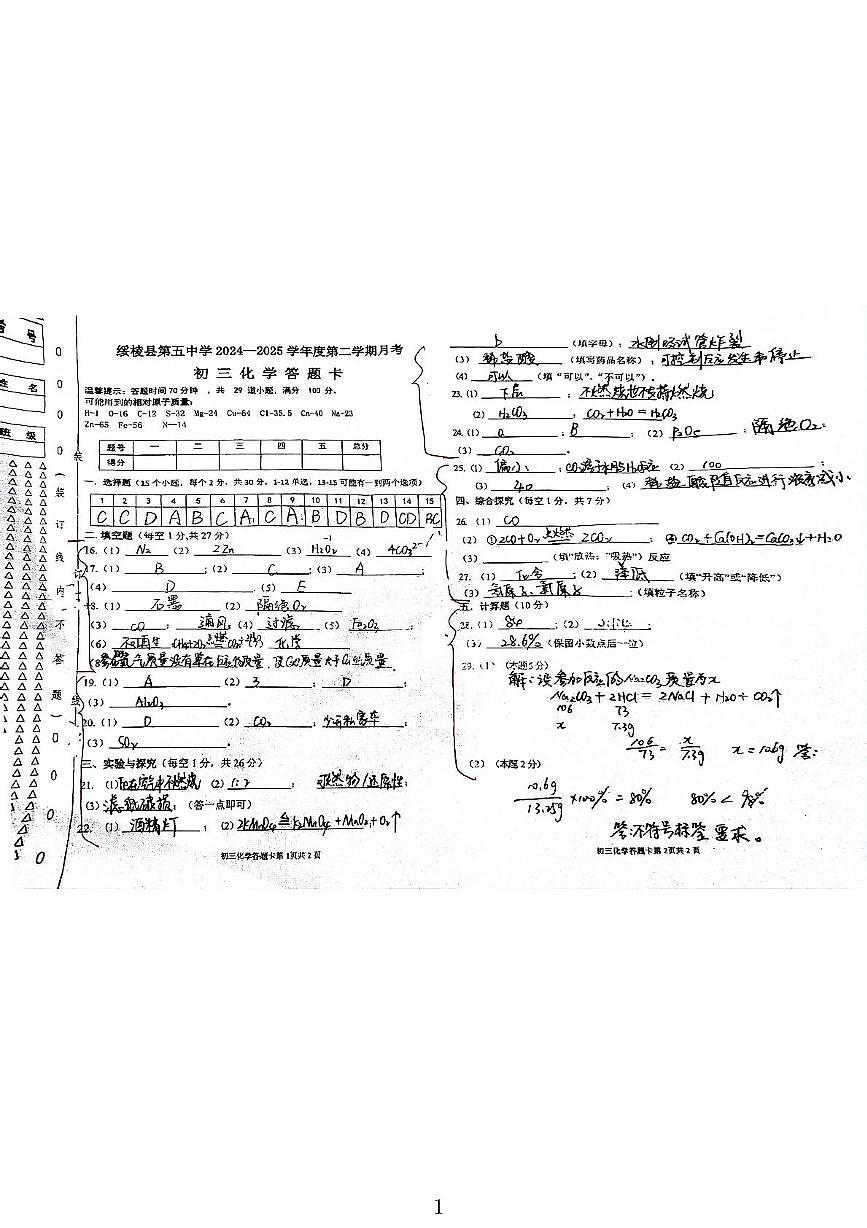 号
姓 名
班 级
装
订
线
内
不
答
题
绥棱县第五中学 2024—2025 学年度第二学期月考
初 三 化 学 答 题 卡
温馨提示：答题时间 70 分钟 ，共 29 道小题，满分 100 分。
可能用到的相对原子质量：
H-1 O-16 C-12 S-32 Mg-24 Cu-64 Cl-35.5 Cn-40 Na-23
Zn-65 Fe-56 N—14
题号 一 二 三 四 五 总分
得分
一、选择题（15 个小题，每个 2 分，共 30 分，1-12 单选，13-15 可能有一到两个选项）
1 2 3 4 5 6 7 8 9 10 11 12 13 14 15
C C D A B C A C A B D B D CD BC
二、填空题（每空 1 分,共 27 分）
16.（1） N₂ （2） 2Zn （3） H₂O₂ （4） 4CO₃²⁻
17.（1） B ；（2） C ；（3） A ；
（4） D （5） E
18.（1） 石墨 （2） 隔绝O₂
（3） CO ； 通风 （4） 过滤 （5） Fe₂O₃
（6） 不可再生 化学
19.（1） A （2） 3 ； D ；
（3） Al₂O₃ 。
20.（1） D （2） CO₂ ； 少开私家车 ；
（3） SO₂ 。
三、实验与探究（每空 1 分，共 26 分）
21.（1） （2） 1:2 ； 可燃物/还原性；
（3） 滤纸破损；（答一点即可）
22.（1） 酒精灯 ；（2） 2KMnO₄ ≜ K₂MnO₄ + MnO₂ + O₂↑
初三化学答题卡第 1 页共 2 页
b （填字母）；水倒流试管炸裂
（3） 稀盐酸 （填写药品名称），可控制反应发生和停止
（4） 可以 （填“可以”、“不可以”）。
23.（1） 下层 ； 不燃烧也不支持燃烧；
（2） H₂CO₃ ； CO₂ + H₂O = H₂CO₃
24.（1） a ； B ；（2） P₂O₅ ； 隔绝O₂；
（3） CO₂ 。
25.（1） 偏小 ； （2） 100 ；
（3） 40 ；（4）
四、综合探究（每空 1 分，共 7 分）
26.（1） CO
（2）①2CO+O₂ 点燃 2CO₂ ；② CO₂ + Ca(OH)₂ = CaCO₃↓ + H₂O
（3） （填“放热；“吸热”）反应
27.（1） ；（2） 降低 （填“升高”或“降低”）
（3） 氢原子、氧原子 ；（填粒子名称）
五、计算题（10 分）
28.（1） 84 ；（2） ；
（3） 28.6% （保留小数点后一位）
29.（1）（本题 5 分）
解：设参加反应的Na₂CO₃质量为x
Na₂CO₃ + 2HCl = 2NaCl + H₂O + CO₂↑
106 73
x 7.3g
106/73 = x/7.3g x = 10.6g 答：
（2）（本题 2 分）
10.6g/13.25g ×100% = 80% 80% < 98%
答：不符号标签要求。
初三化学答题卡第 2 页共 2 页
1